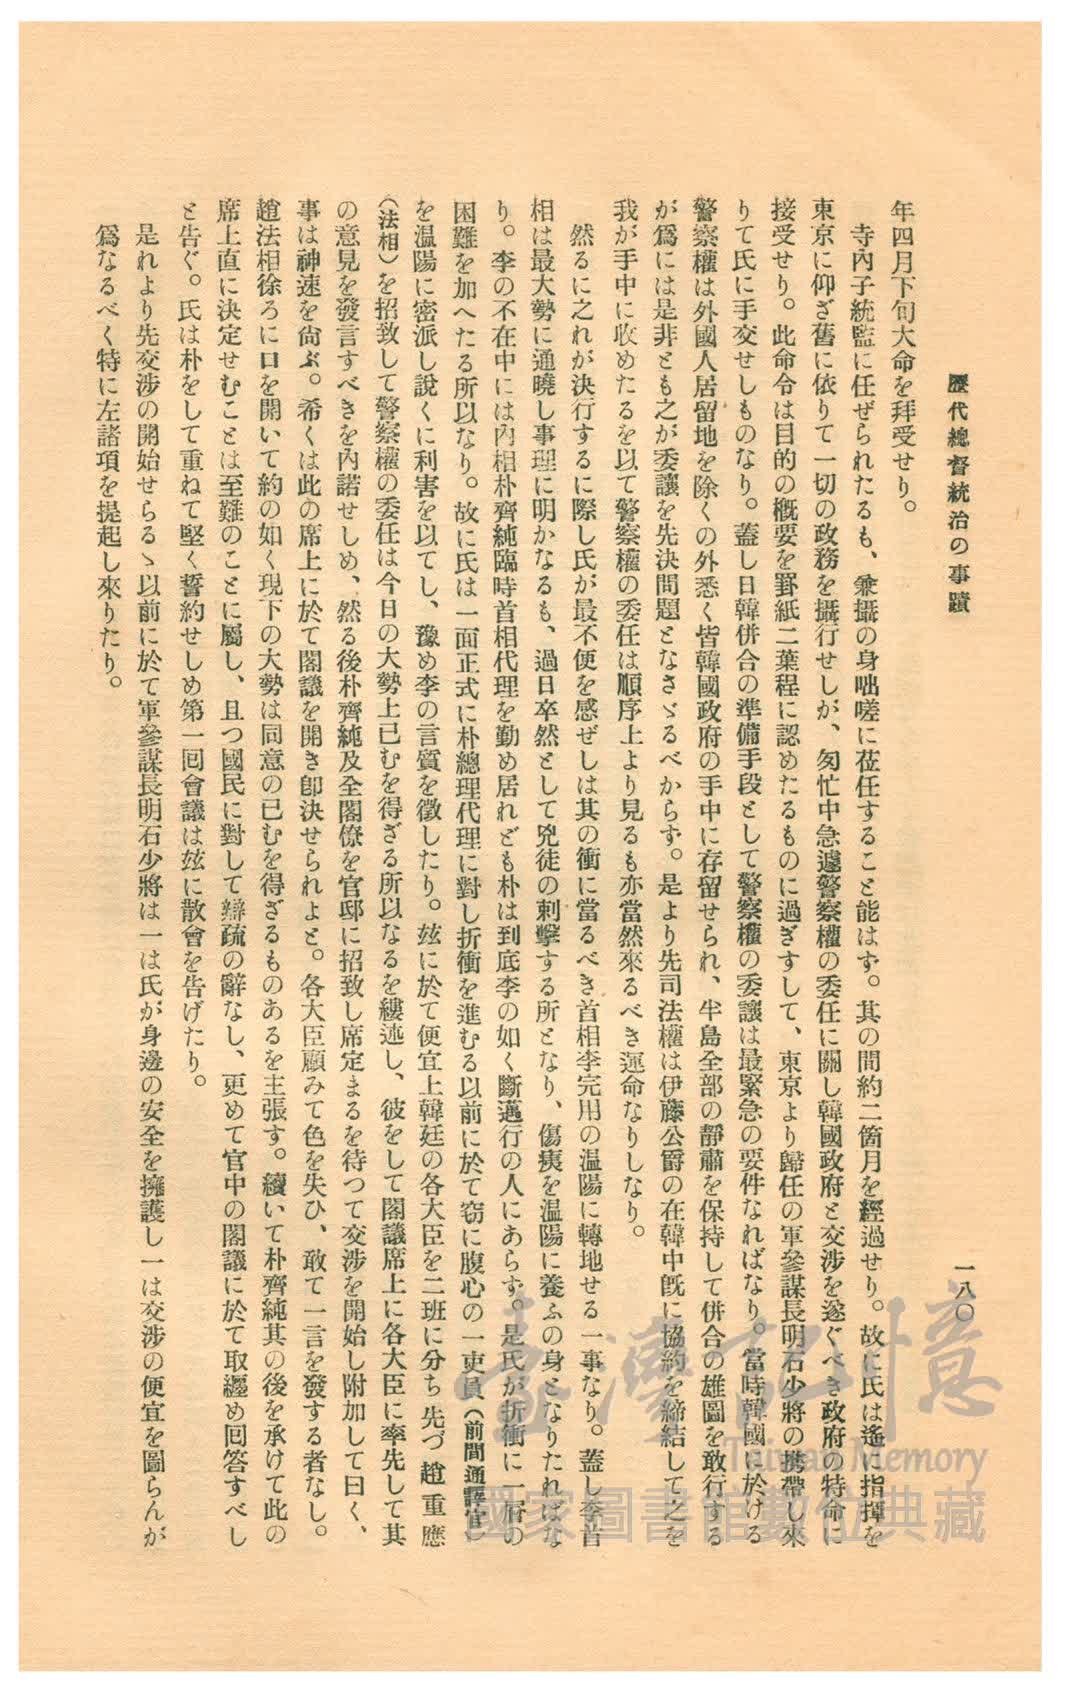 歷代總督統治の事蹟
一八〇
年四月下旬大命を拜受せり。
寺內子統監に任ぜられたるも、兼攝の身咄嗟に莅任すること能はす。其の間約二箇月を經過せり。故に氏は遙に指揮を
東京に仰ぎ舊に依りて一切の政務を攝行せしが、匆忙中急遽警察權の委任に關し韓國政府と交涉を遂ぐべき政府の特命に
接受せり。此命令は目的の槪要を罫紙二葉程に認めたるものに過ぎすして、東京より歸任の軍參謀長明石少將の携帶し來
りて氏に手交せしものなり。蓋し日韓併合の準備手段として警察權の委讓は最緊急の要件なればなり。當時韓國に於ける
警察權は外國人居留地を除くの外悉く皆韓國政府の手中に存留せられ、半島全部の靜肅を保持して併合の雄圖を敢行する
が爲には是非とも之が委讓を先決問題となさゞるべからす。是より先司法權は伊藤公爵の在韓中旣に協約を締結して之を
我が手中に收めたるを以て警察權の委任は順序上より見るも亦當然來るべき運命なりしなり。
然るに之れが決行するに際し氏が最不便を感ぜしは其の衝に當るべき首相李完用の温陽に轉地せる一事なり。蓋し李首
相は最大勢に通曉し事理に明かなるも、過日卒然として兇徒の刺擊する所となり、傷痍を温陽に養ふの身となりたればな
り。李の不在中には內相朴齊純臨時首相代理を勤め居れども朴は到底李の如く斷邁行の人にあらす。是氏が折衝に一層の
困難を加へたる所以なり。故に氏は一面正式に朴總理代理に對し折衝を進むる以前に於て窃に腹心の一吏員（前間通譯官）
を温陽に密派し說くに利害を以てし、豫め李の言質を徵したり。玆に於て便宜上韓廷の各大臣を二班に分ち先づ趙重應
（法相）を招致して警察權の委任は今日の大勢上已むを得ざる所以なるを縷述し、彼をして閣議席上に各大臣に率先して其
の意見を發言すべきを內諾せしめ、然る後朴齊純及全閣僚を官邸に招致し席定まるを待つて交涉を開始し附加して曰く、
事は神速を尙ぶ。希くは此の席上に於て閣議を開き卽決せられよと。各大臣顧みて色を失ひ、敢て一言を發する者なし。
趙法相徐ろに口を開いて約の如く現下の大勢は同意の已むを得ざるものあるを主張す。續いて朴齊純其の後を承けて此の
席上直に決定せむことは至難のことに屬し、且つ國民に對して辯疏の辭なし、更めて官中の閣議に於て取纒め回答すべし
と告ぐ。氏は朴をして重ねて堅く誓約せしめ第一回會議は玆に散會を告げたり。
是れより先交涉の開始せらるゝ以前に於て軍參謀長明石少將は一は氏が身邊の安全を擁護し一は交涉の便宜を圖らんが
爲なるべく特に左諸項を提起し來りたり。
臺灣記憶
Taiwan Memory
國家圖書館數位典藏